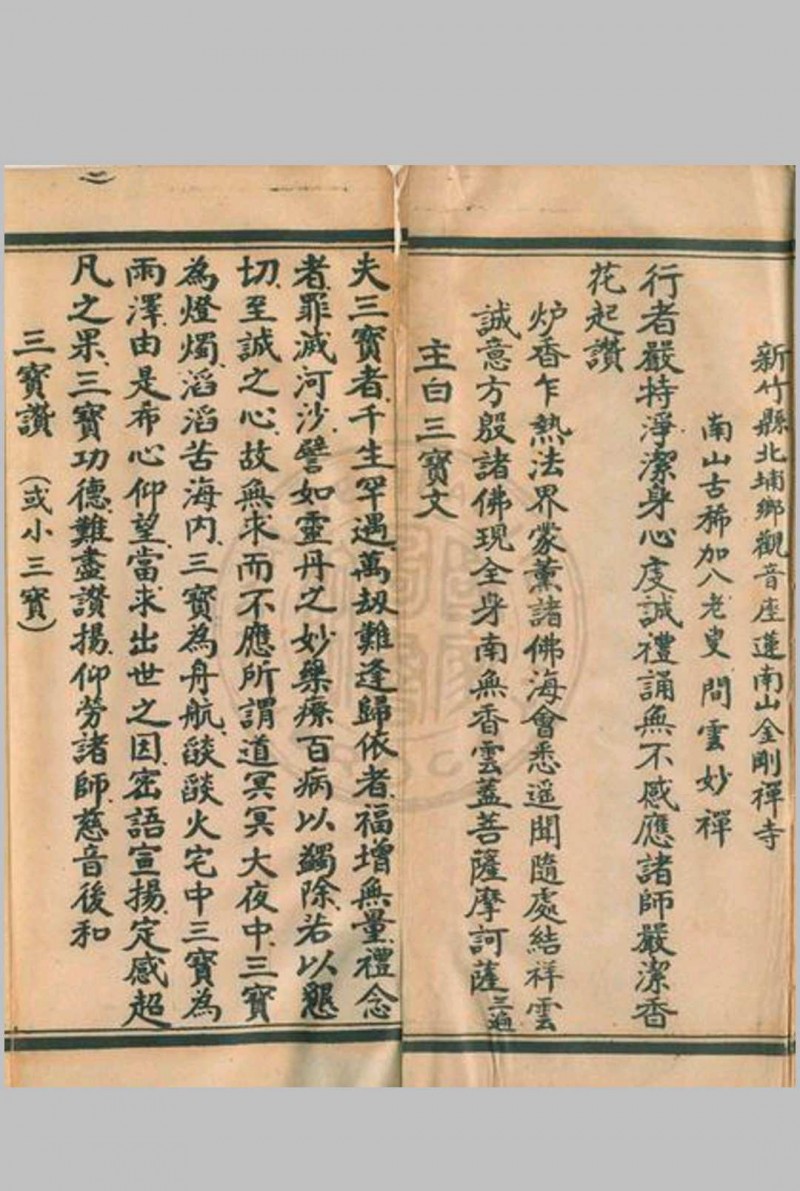 新竹縣北埔鄉觀音座蓮南山金剛禪寺
南山古稀加八老叟 間雲妙禪
行者嚴持淨潔身心虔誠禮誦無不感應諸師嚴潔香
花起讚
炉香乍熱法界蒙薰諸佛海會悉遥聞隨處結祥雲
誠意方殷諸佛現全身南無香雲蓋菩薩摩訶薩三遍
主白三寶文
夫三寶者千生罕遇萬劫難逢歸依者福增無量禮念
者罪滅河沙譬如靈丹之妙藥療百病以蠲除若以懇
切至誠之心故無求而不應所謂道冥冥大夜中三寶
為燈燭滔滔苦海內三寶為舟航燄燄火宅中三寶為
雨澤由是布心仰望當來出世之因密語宣揚定感超
凡之果三寶功德難盡讚揚仰勞諸師慈音後和
三寶讚（或小三寶）